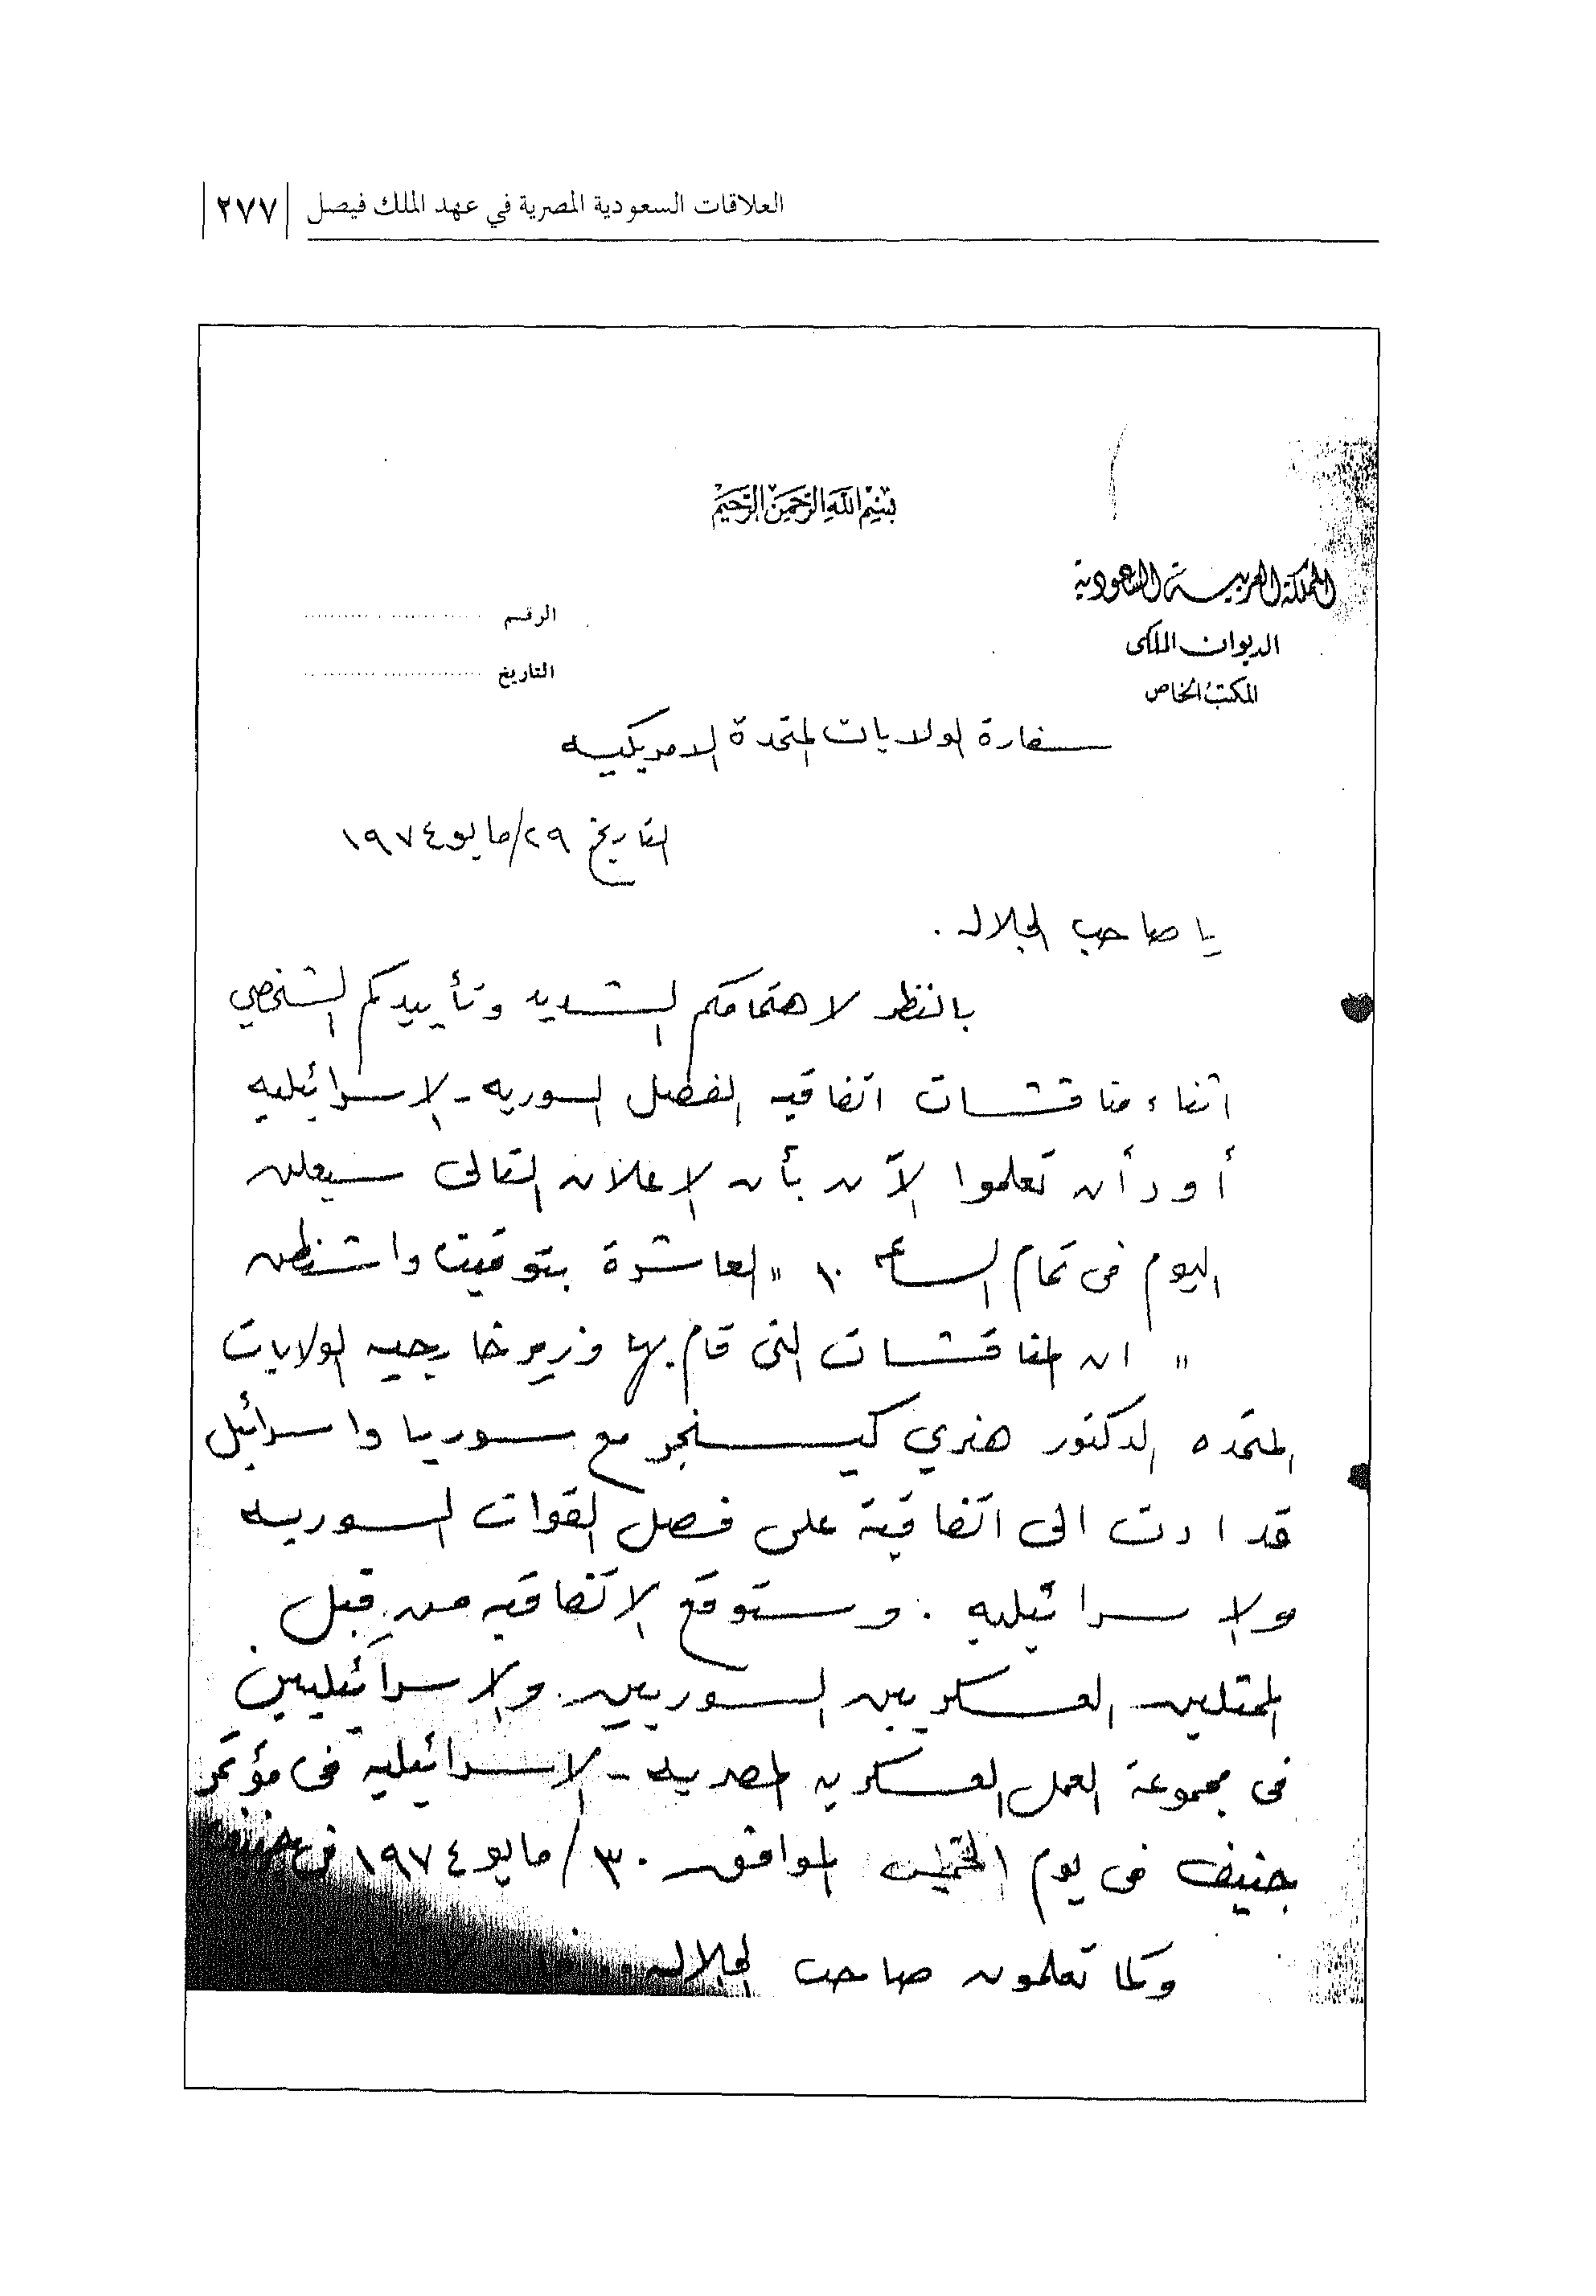 العلاقات السعودية المصرية في عهد الملك فيصل | ٢٧٧ |
بسم الله الرحمن الرحيم
المملكة العربية السعودية
الديوان الملكي
المكتب الخاص
الرقم
التاريخ
سفارة الولايات المتحدة الامريكيه
التاريخ ٢٩/مايو ١٩٧٤
يا صاحب الجلاله .
بالنظر لاهتمامكم الشديد وتأييدكم الشخصي
اثناء مناقشات اتفاقيه الفصل السوريه - الاسرائيليه
أود أن تعلموا الآن بأن الإعلان التالى سيعلن
اليوم فى تمام الساعه ١٠ " العاشرة بتوقيت واشنطن
" ان المناقشات التى قام بها وزير خارجيه الولايات
المتحده الدكتور هنري كيسنجر مع سوريا واسرائيل
قد ادت الى اتفاقية على فصل القوات السوريه
والاسرائيليه . وستوقع الاتفاقيه من قبل
الممثلين العسكريين السوريين والاسرائيليين
فى مجموعة العمل العسكريه المصريه - الاسرائيليه فى مؤتمر
جنيف فى يوم الخميس الموافق ٣٠/مايو ١٩٧٤ فى جنيف
وكما تعلمون صاحب الجلاله